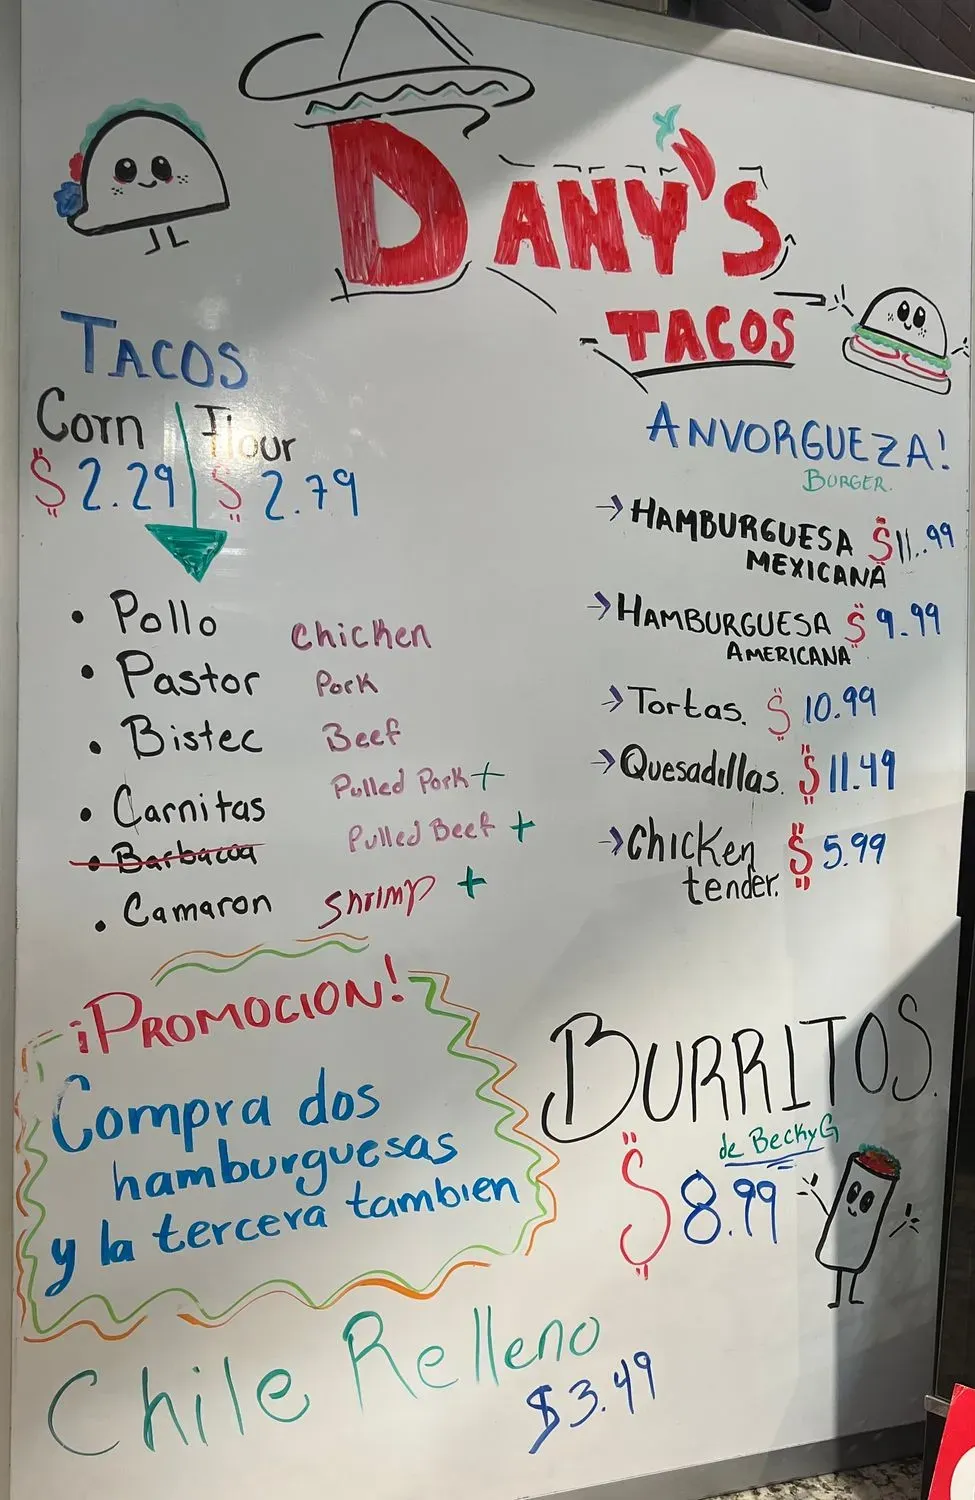 DANY'S
TACOS
TACOS
Corn Flour
$2.29 $2.79
• Pollo Chicken
• Pastor Pork
• Bistec Beef
• Carnitas Pulled Pork +
• Barbacoa Pulled Beef +
• Camaron Shrimp +
ANVORGUEZA!
BURGER.
→ HAMBURGUESA $11.99
MEXICANA
→ HAMBURGUESA $9.99
AMERICANA
→ Tortas. $10.99
→ Quesadillas. $11.49
→ Chicken $5.99
tender.
¡PROMOCION!
Compra dos
hamburguesas
y la tercera tambien
BURRITOS.
de BeckyG
$8.99
Chile Relleno
$3.49